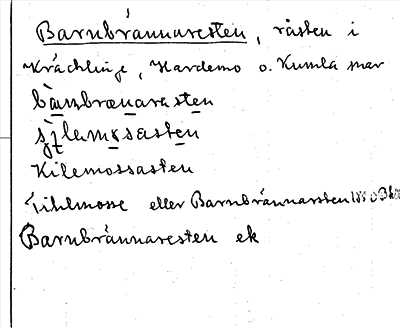 Barnbrännaresten, råsten i
Kräcklinge, Hardemo o. Kumla snar
bɑ̀nbrænarasten
Kilemossasten
Kihlmosse eller Barnbrännarsten
Barnbrännaresten ek